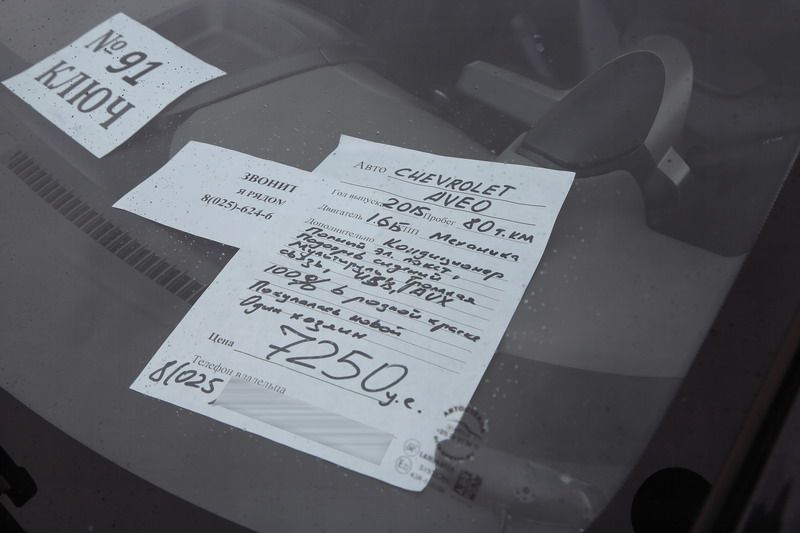 № 91
КЛЮЧ
ЗВОНИТ
Я РЯДОМ
8(025)-624-6
Авто CHEVROLET
AVEO
Год выпуска 2015 Пробег 80 т.км
Двигатель 1.6б КПП Механика
Дополнительно Кондиционер
Полный эл. пакет,
Подогрев сидений,
Мультируль, громкая
связь, USB, AUX
100% в родной краске
Покупалась новой
Один хозяин
Цена 7250 у.е.
Телефон владельца
8(025)